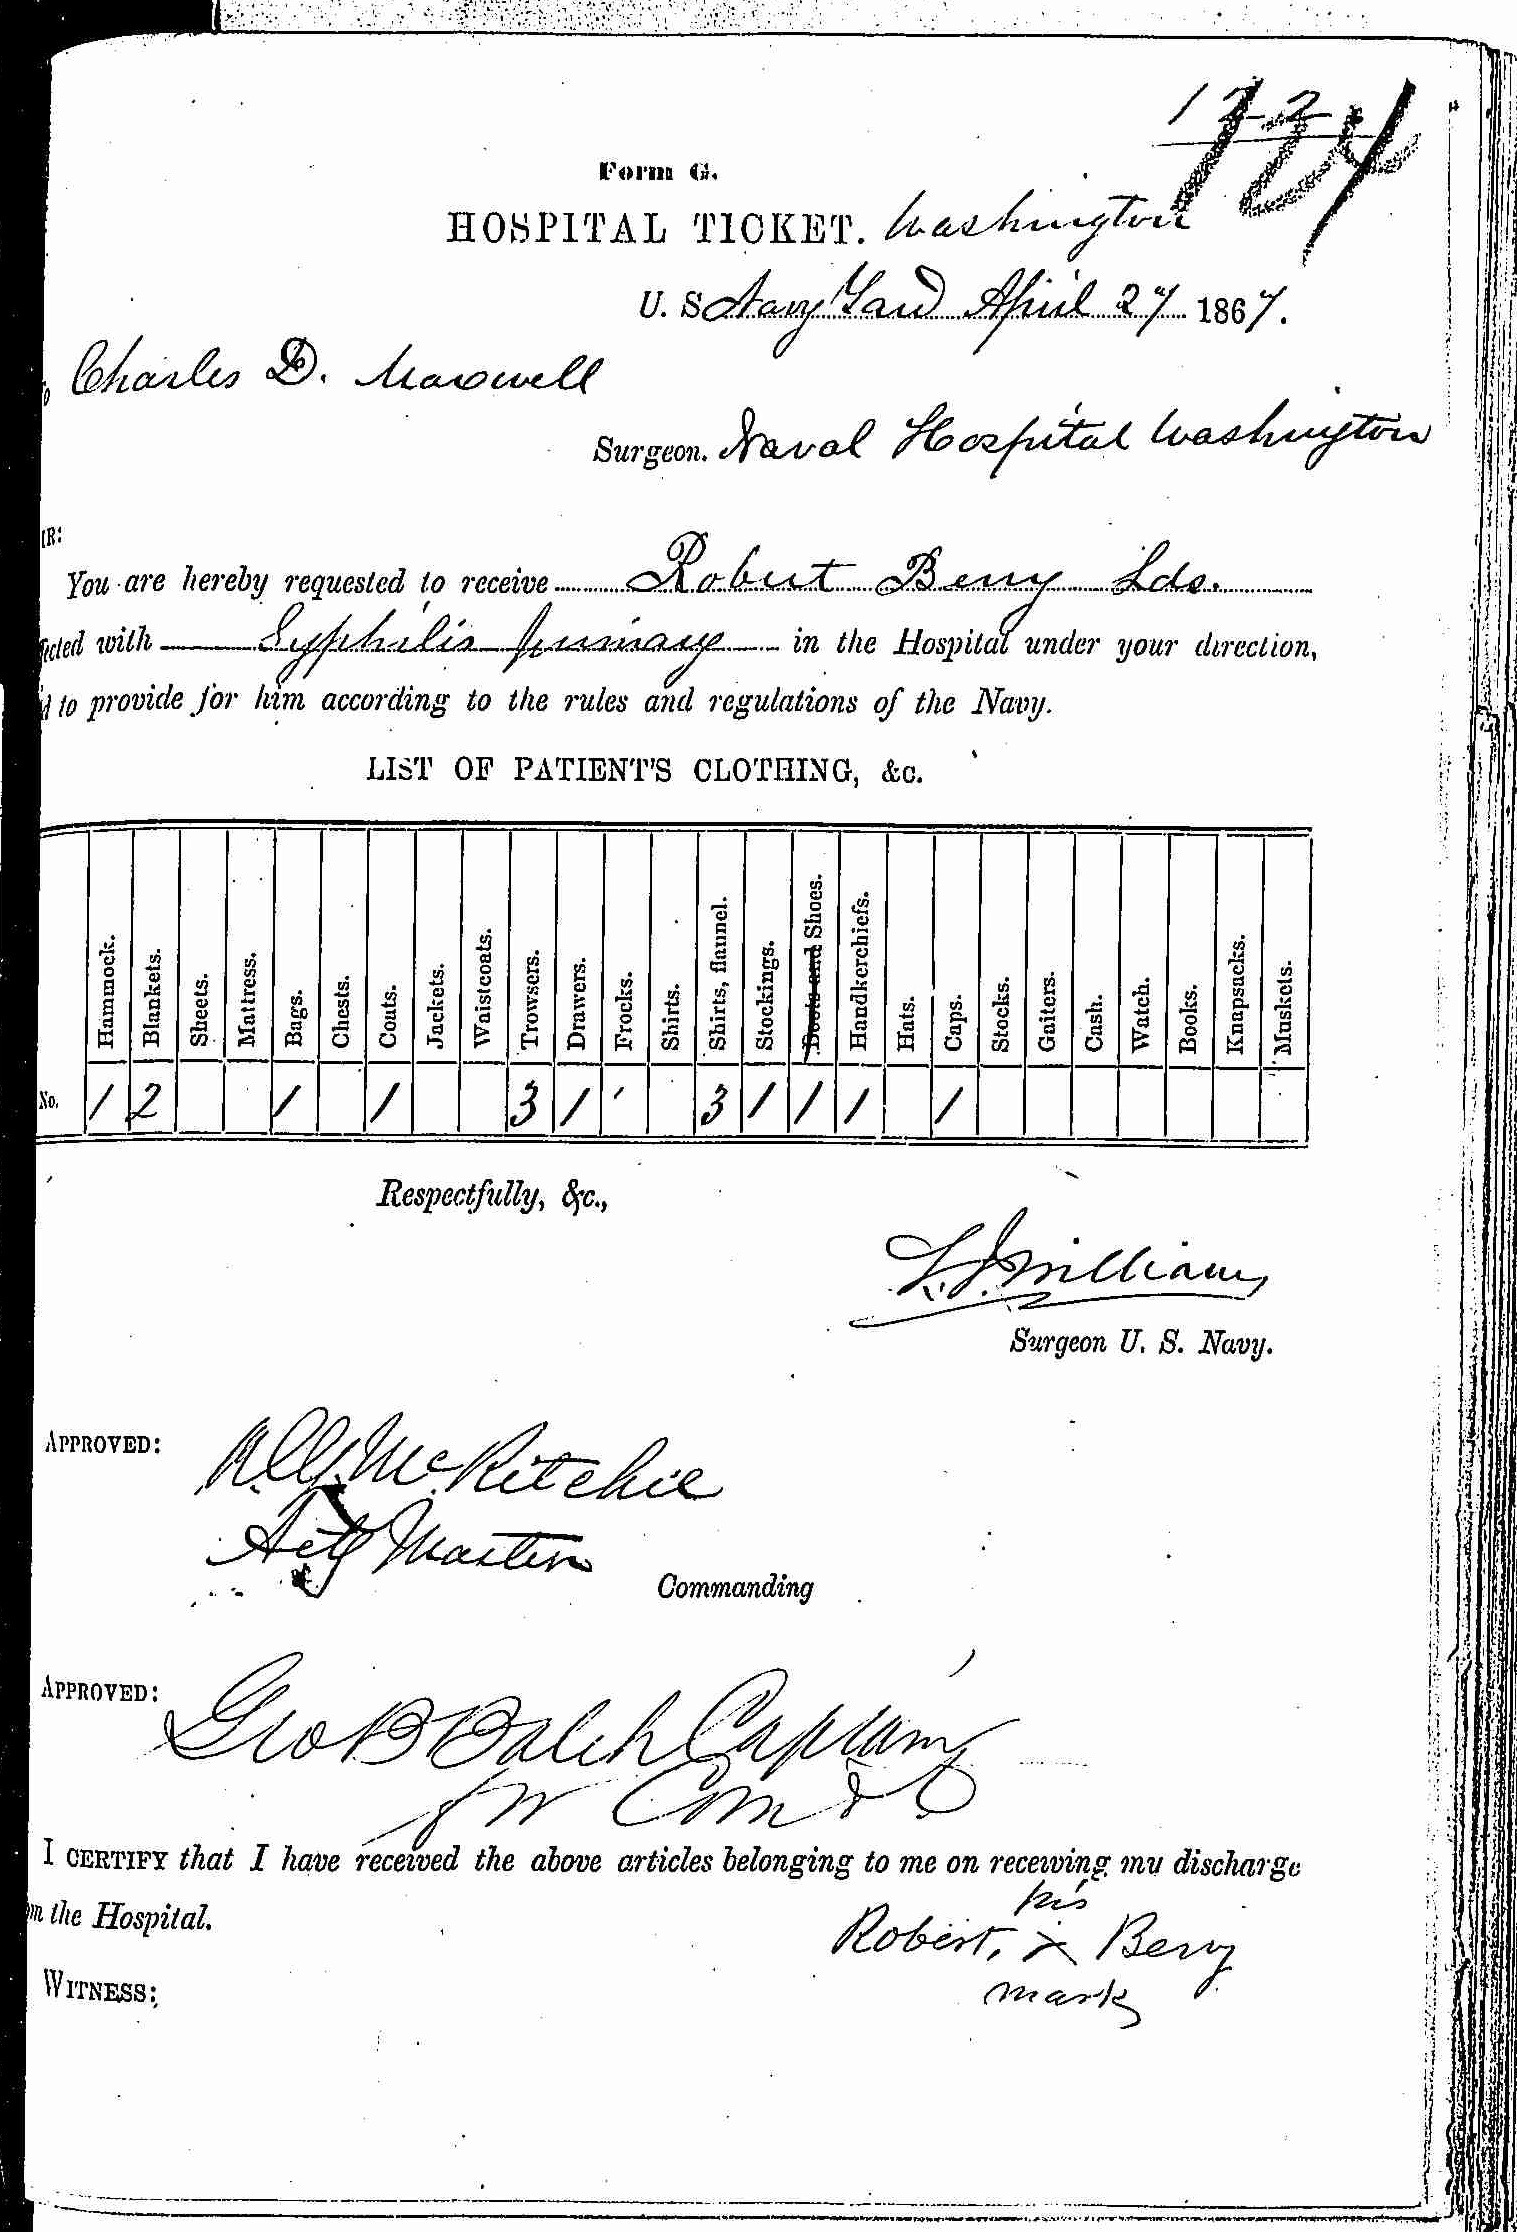 132
134
Form G.
HOSPITAL TICKET. Washington
U. S Navy Yard April 27 1867.
Charles D. Maxwell
Surgeon. Naval Hospital Washington
IR:
You are hereby requested to receive Robert Berry Lds.
ected with Syphilis primary in the Hospital under your direction,
d to provide for him according to the rules and regulations of the Navy.
LIST OF PATIENT'S CLOTHING, &c.
Hammock. Blankets. Sheets. Mattress. Bags. Chests. Coats. Jackets. Waistcoats. Trowsers. Drawers. Frocks. Shirts. Shirts, flannel. Stockings. Boots and Shoes. Handkerchiefs. Hats. Caps. Stocks. Gaiters. Cash. Watch. Books. Knapsacks. Muskets.
No. 1 2 1 1 3 1 ' 3 1 1 1 1
Respectfully, &c.,
Williams
Surgeon U. S. Navy.
APPROVED:
McRitchie
Actg Master
Commanding
APPROVED:
Geo B Balch Captain
for Comdt
I CERTIFY that I have received the above articles belonging to me on receiving my discharge
m the Hospital.
his
Robert, x Berry
mark
WITNESS: